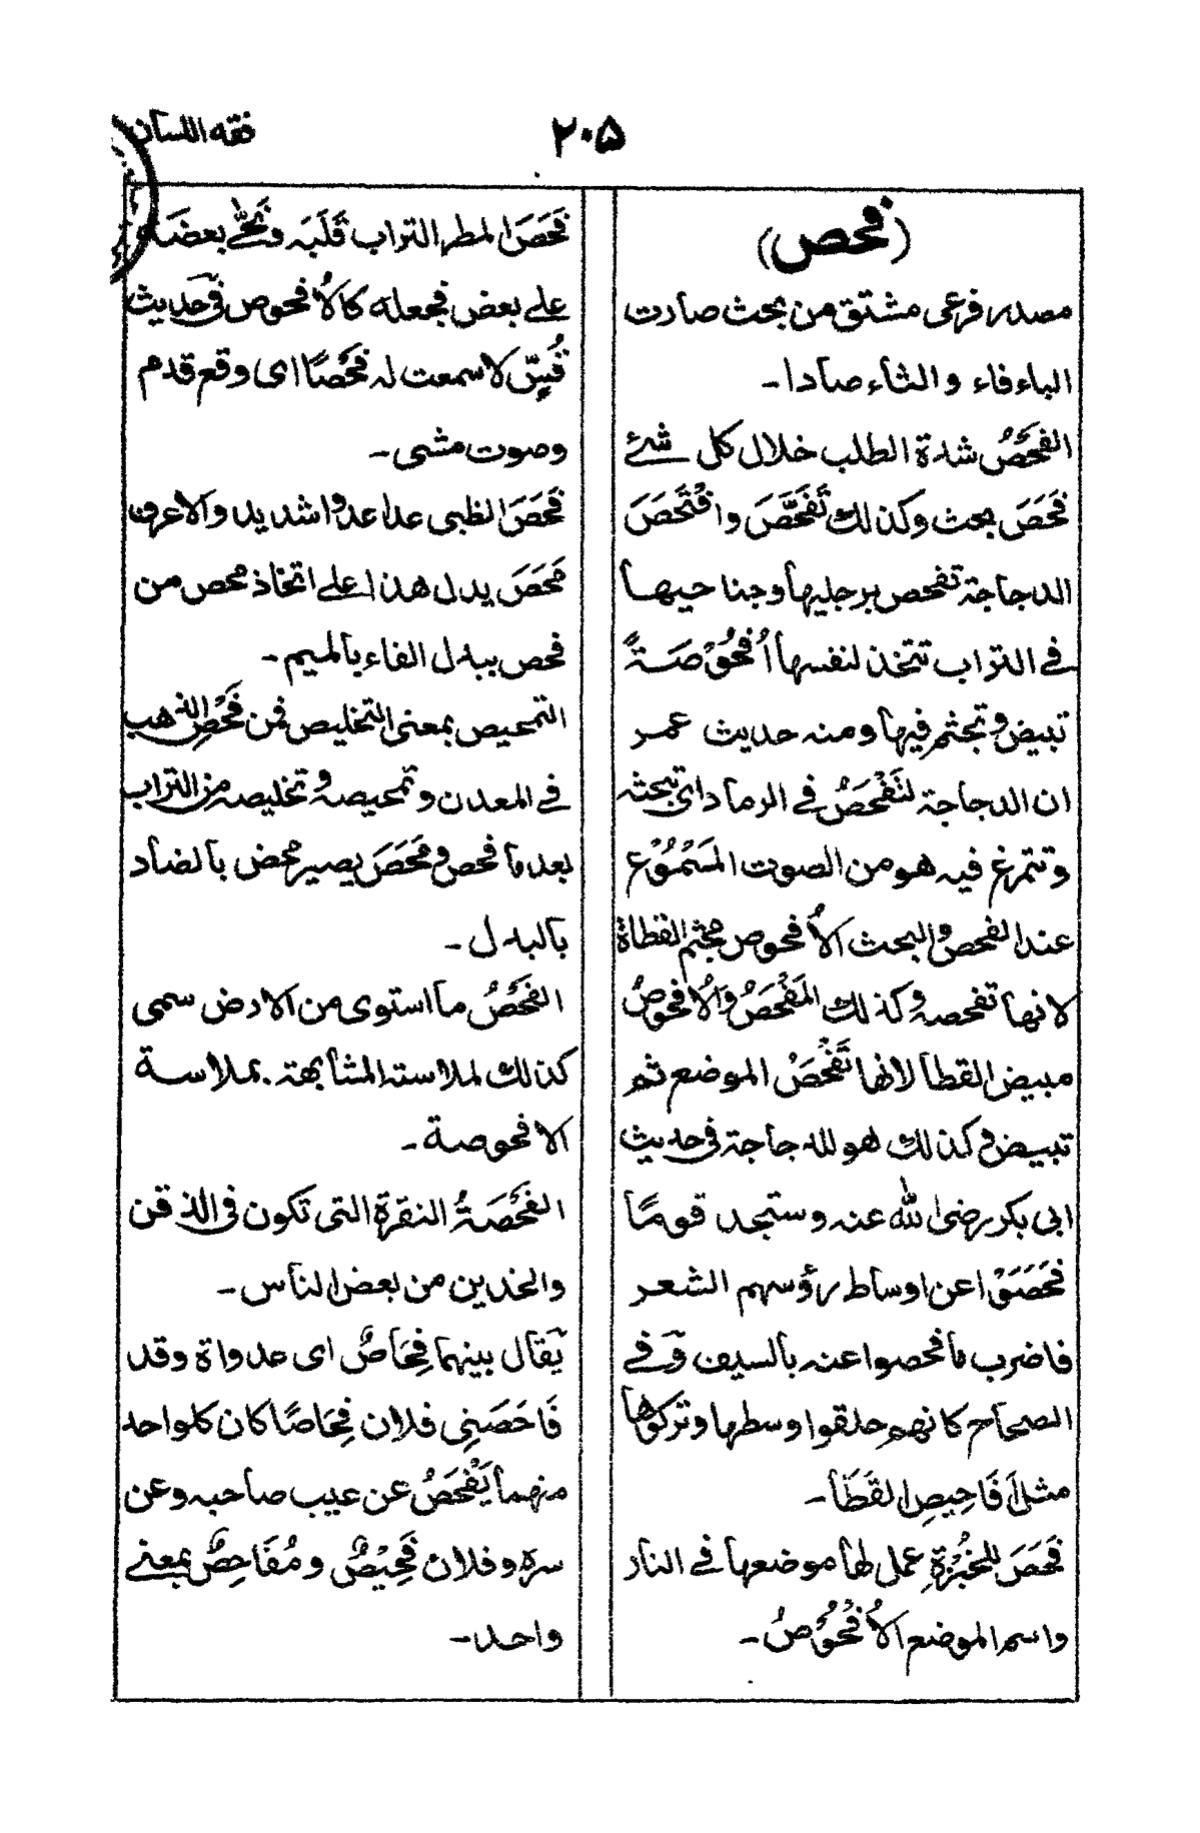 فقه اللسان
۲۰۵
(فحص)
مصدر فرعی مشتق من بحث صارت
الباء فاء والثاء صادا۔
الفَحَصُ شدة الطلب خلال كل شئے
فَحَصَ بحث وكذلك تَفَحَّصَ وافْتَحَصَ
الدجاجة تفحص برجليها وجناحيها
فے التراب تتخذ لنفسها اُفْحُوْصَةً
تبيض وتجثم فيها ومنه حديث عمر
ان الدجاجة لتَفْحَصُ فے الرماد ای تبحثه
وتتمرغ فيه هو من الصوت المَسْمُوْع
عند الفحص والبحث الاُفحوص مجثم القطاة
لانها تفحصه وكذلك المَفْحَصُ والاُفحوصُ
مبيض القطا لانها تَفْحَصُ الموضع ثم
تبيض وكذلك هو للدجاجة فی حديث
ابی بكر رضی الله عنه وستجد قومًا
فَحَصَوْا عن اوساط رؤسهم الشعر
فاضرب ما فحصوا عنه بالسيف وفے
الصحاح كانهم حلقوا وسطها وتركوها
مثل اَفَاحِيصِ القَطَا۔
فَحَصَ للخُبْزَةِ عمل لها موضعها فے النار
واسم الموضع الاُفْحُوْصُ۔
فَحَصَ المطر التراب قَلَبَه ونَحّٰے بعضه
علے بعض فجعله كالاُفحوص فی حديث
قُسٍّ لا سمعت له فَحْصًا ای وقع قدم
وصوت مشی۔
فَحَصَ الظبی عدا عدوا شديدا والاعرف
مَحَصَ يدل هذا علے اتخاذ محص من
فحص ببدل الفاء بالميم۔
التمحيص بمعنی التخليص فمن فَحْصِ الذهب
فے المعدن وتمحيصه وتخليصه من التراب
بعد ما فحص ومَحَصَ يصير محض بالضاد
بالبدل۔
الفَحْصُ ما استوی من الارض سمی
كذلك لملاسته المشابهة بملاسة
الافحوصة۔
الفَحْصَةُ النقرة التی تكون فی الذقن
والخدين من بعض الناس۔
يَقال بينهما فِحَاصٌ ای عدواة وقد
فَاحَصَنِی فلان فِحَاصًا كان كلواحد
منهما يَفْحَصُ عن عيب صاحبه وعن
سره وفلان فَحِيْصٌ ومُفَاحِصٌ بمعنے
واحد۔